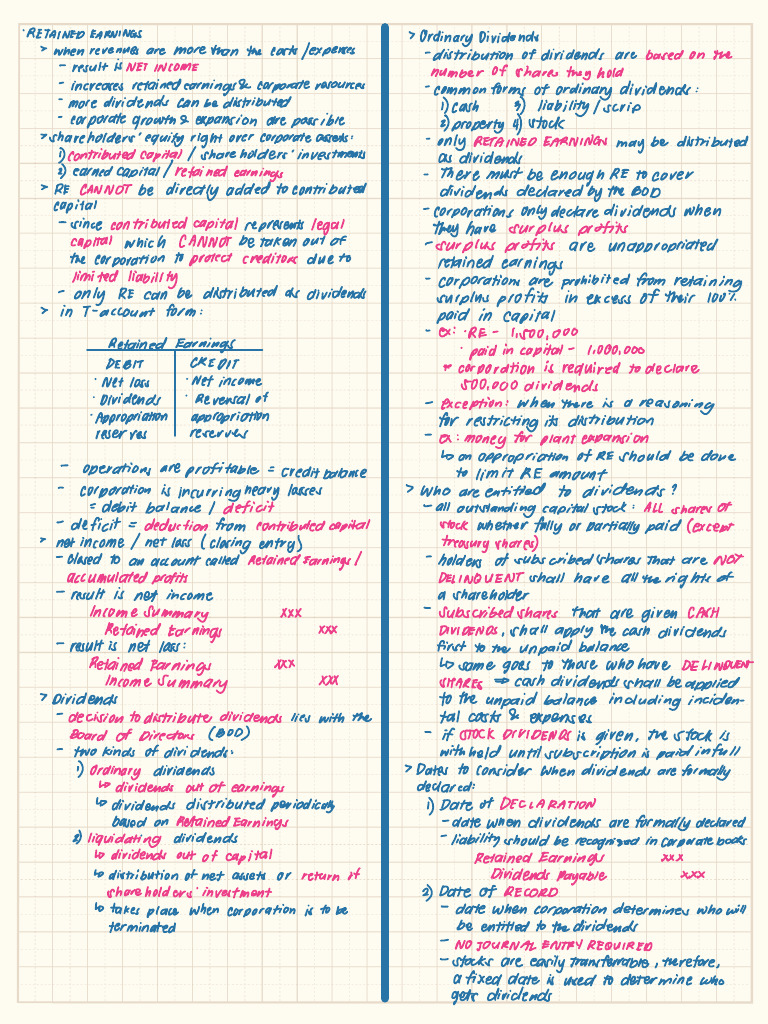 · RETAINED EARNINGS
> when revenues are more than the costs / expenses
- result is NET INCOME
- increases retained earnings & corporate resources
- more dividends can be distributed
- corporate growth & expansion are possible
> shareholders' equity right over corporate assets:
1) contributed capital / share holders' investments
2) earned capital / retained earnings
> RE CANNOT be directly added to contributed
capital
- since contributed capital represents legal
capital which CANNOT be taken out of
the corporation to protect creditors due to
limited liability
- only RE can be distributed as dividends
> in T-account form:
Retained Earnings
DEBIT CREDIT
· Net loss · Net income
· Dividends · Reversal of
· Appropriation appropriation
reserves reserves
- operations are profitable = credit balance
- corporation is incurring heavy losses
= debit balance / deficit
- deficit = deduction from contributed capital
> net income / net loss (closing entry)
- closed to an account called Retained Earnings /
accumulated profits
- result is net income
Income Summary xxx
Retained Earnings xxx
- result is net loss:
Retained Earnings xxx
Income Summary xxx
> Dividends
- decision to distribute dividends lies with the
Board of Directors (BOD)
- two kinds of dividends:
1) Ordinary dividends
↳ dividends out of earnings
↳ dividends distributed periodically
based on Retained Earnings
2) liquidating dividends
↳ dividends out of capital
↳ distribution of net assets or return of
shareholders' investment
↳ takes place when corporation is to be
terminated
> Ordinary Dividends
- distribution of dividends are based on the
number of shares they hold
- common forms of ordinary dividends:
1) cash 3) liability / scrip
2) property 4) stock
- only RETAINED EARNINGS may be distributed
as dividends
- There must be enough RE to cover
dividends declared by the BOD
- corporations only declare dividends when
they have surplus profits
- surplus profits are unappropriated
retained earnings
- corporations are prohibited from retaining
surplus profits in excess of their 100%
paid in capital
- ex: · RE - 1,500,000
· paid in capital - 1,000,000
* corporation is required to declare
500,000 dividends
- exception: when there is a reasoning
for restricting its distribution
- ex: money for plant expansion
↳ an appropriation of RE should be done
to limit RE amount
> Who are entitled to dividends?
- all outstanding capital stock: ALL shares of
stock whether fully or partially paid (except
treasury shares)
- holders of subscribed shares that are NOT
DELINQUENT shall have all the rights of
a shareholder
- Subscribed shares that are given CASH
DIVIDENDS, shall apply the cash dividends
first to the unpaid balance
↳ same goes to those who have DELINQUENT
SHARES ⇒ cash dividends shall be applied
to the unpaid balance including inciden-
tal costs & expenses
- if STOCK DIVIDENDS is given, the stock is
withheld until subscription is paid in full
> Dates to consider when dividends are formally
declared:
1) Date of DECLARATION
- date when dividends are formally declared
- liability should be recognized in corporate books
Retained Earnings xxx
Dividends Payable xxx
2) Date of RECORD
- date when corporation determines who will
be entitled to the dividends
- NO JOURNAL ENTRY REQUIRED
- stocks are easily transferrable, therefore,
a fixed date is used to determine who
gets dividends